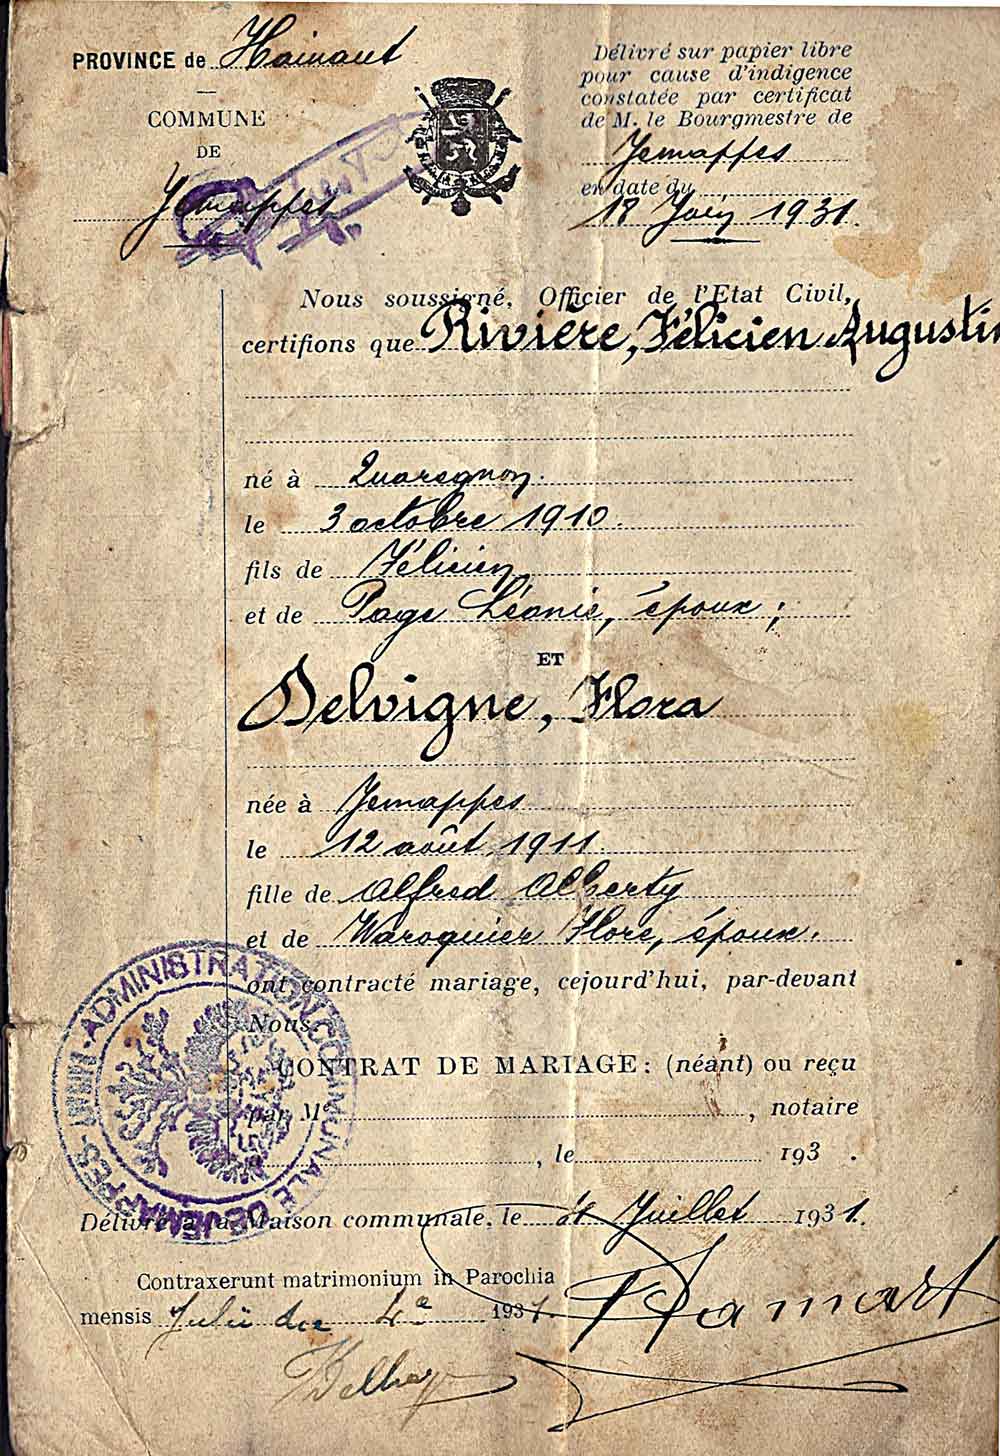 PROVINCE de Hainaut
COMMUNE
DE
Jemappes
Délivré sur papier libre
pour cause d'indigence
constatée par certificat
de M. le Bourgmestre de
Jemappes
en date du
18 Juin 1931.
Nous soussigné, Officier de l'Etat Civil,
certifions que Rivière, Félicien Augustin
né à Quaregnon.
le 3 octobre 1910.
fils de Félicien
et de Page Léonie, époux ;
ET
Delvigne, Flora
née à Jemappes
le 12 août 1911.
fille de Alfred Alberty
et de Waroquier Flore, époux.
ont contracté mariage, cejourd'hui, par-devant
Nous.
CONTRAT DE MARIAGE : (néant) ou reçu
par Me , notaire
à , le 193 .
ADMINISTRATION COMMUNALE DE JEMAPPES
Délivré à la Maison communale, le 4 Juillet 1931.
Contraxerunt matrimonium in Parochia
mensis Julii die 4a 1931.